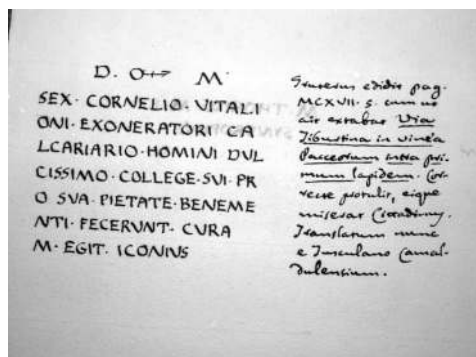 D. O↦ M.
SEX · CORNELIO · VITALI
ONI · EXONERATORI CA
LCARIARIO · HOMINI DVL
CISSIMO · COLLEGE · SVI · PR
O SVA · PIETATE · BENEME
NTI · FECERVNT · CVRA
M · EGIT · ICONIUS
Gruterus edidit pag.
MCXVII. 5. cum us
extabat Via
Tiburtina in vinea
intra pri-
mum lapidem. Cor-
recte protulit, eique
miserat Cittadinus.
Translatum nunc
e Tusculano Camal-
dulensium.